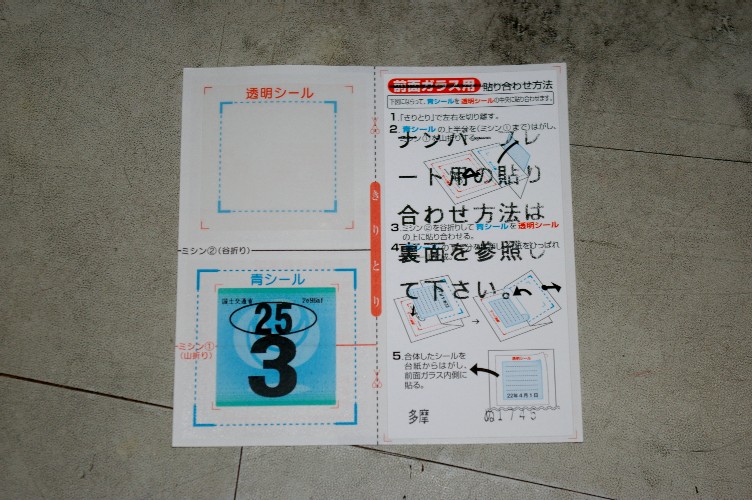 透明シール
ミシン②(谷折り)
青シール
国土交通省
25
3
ミシン①
(山折り)
きりとり
前面ガラス用 貼り合わせ方法
下図にならって、青シールを透明シールの中央に貼り合わせます。
1.「きりとり」で左右を切り離す。
2.青シールの上半分を(ミシン①まで)はがし、
ナンバープレ
ート用の貼り
合わせ方法は
3.ミシン②を谷折りして青シールを透明シール
の上に貼り合わせる。
裏面を参照し
て下さい。
5.合体したシールを
台紙からはがし、
前面ガラス内側に
貼る。
透明シール
22年4月1日
多摩